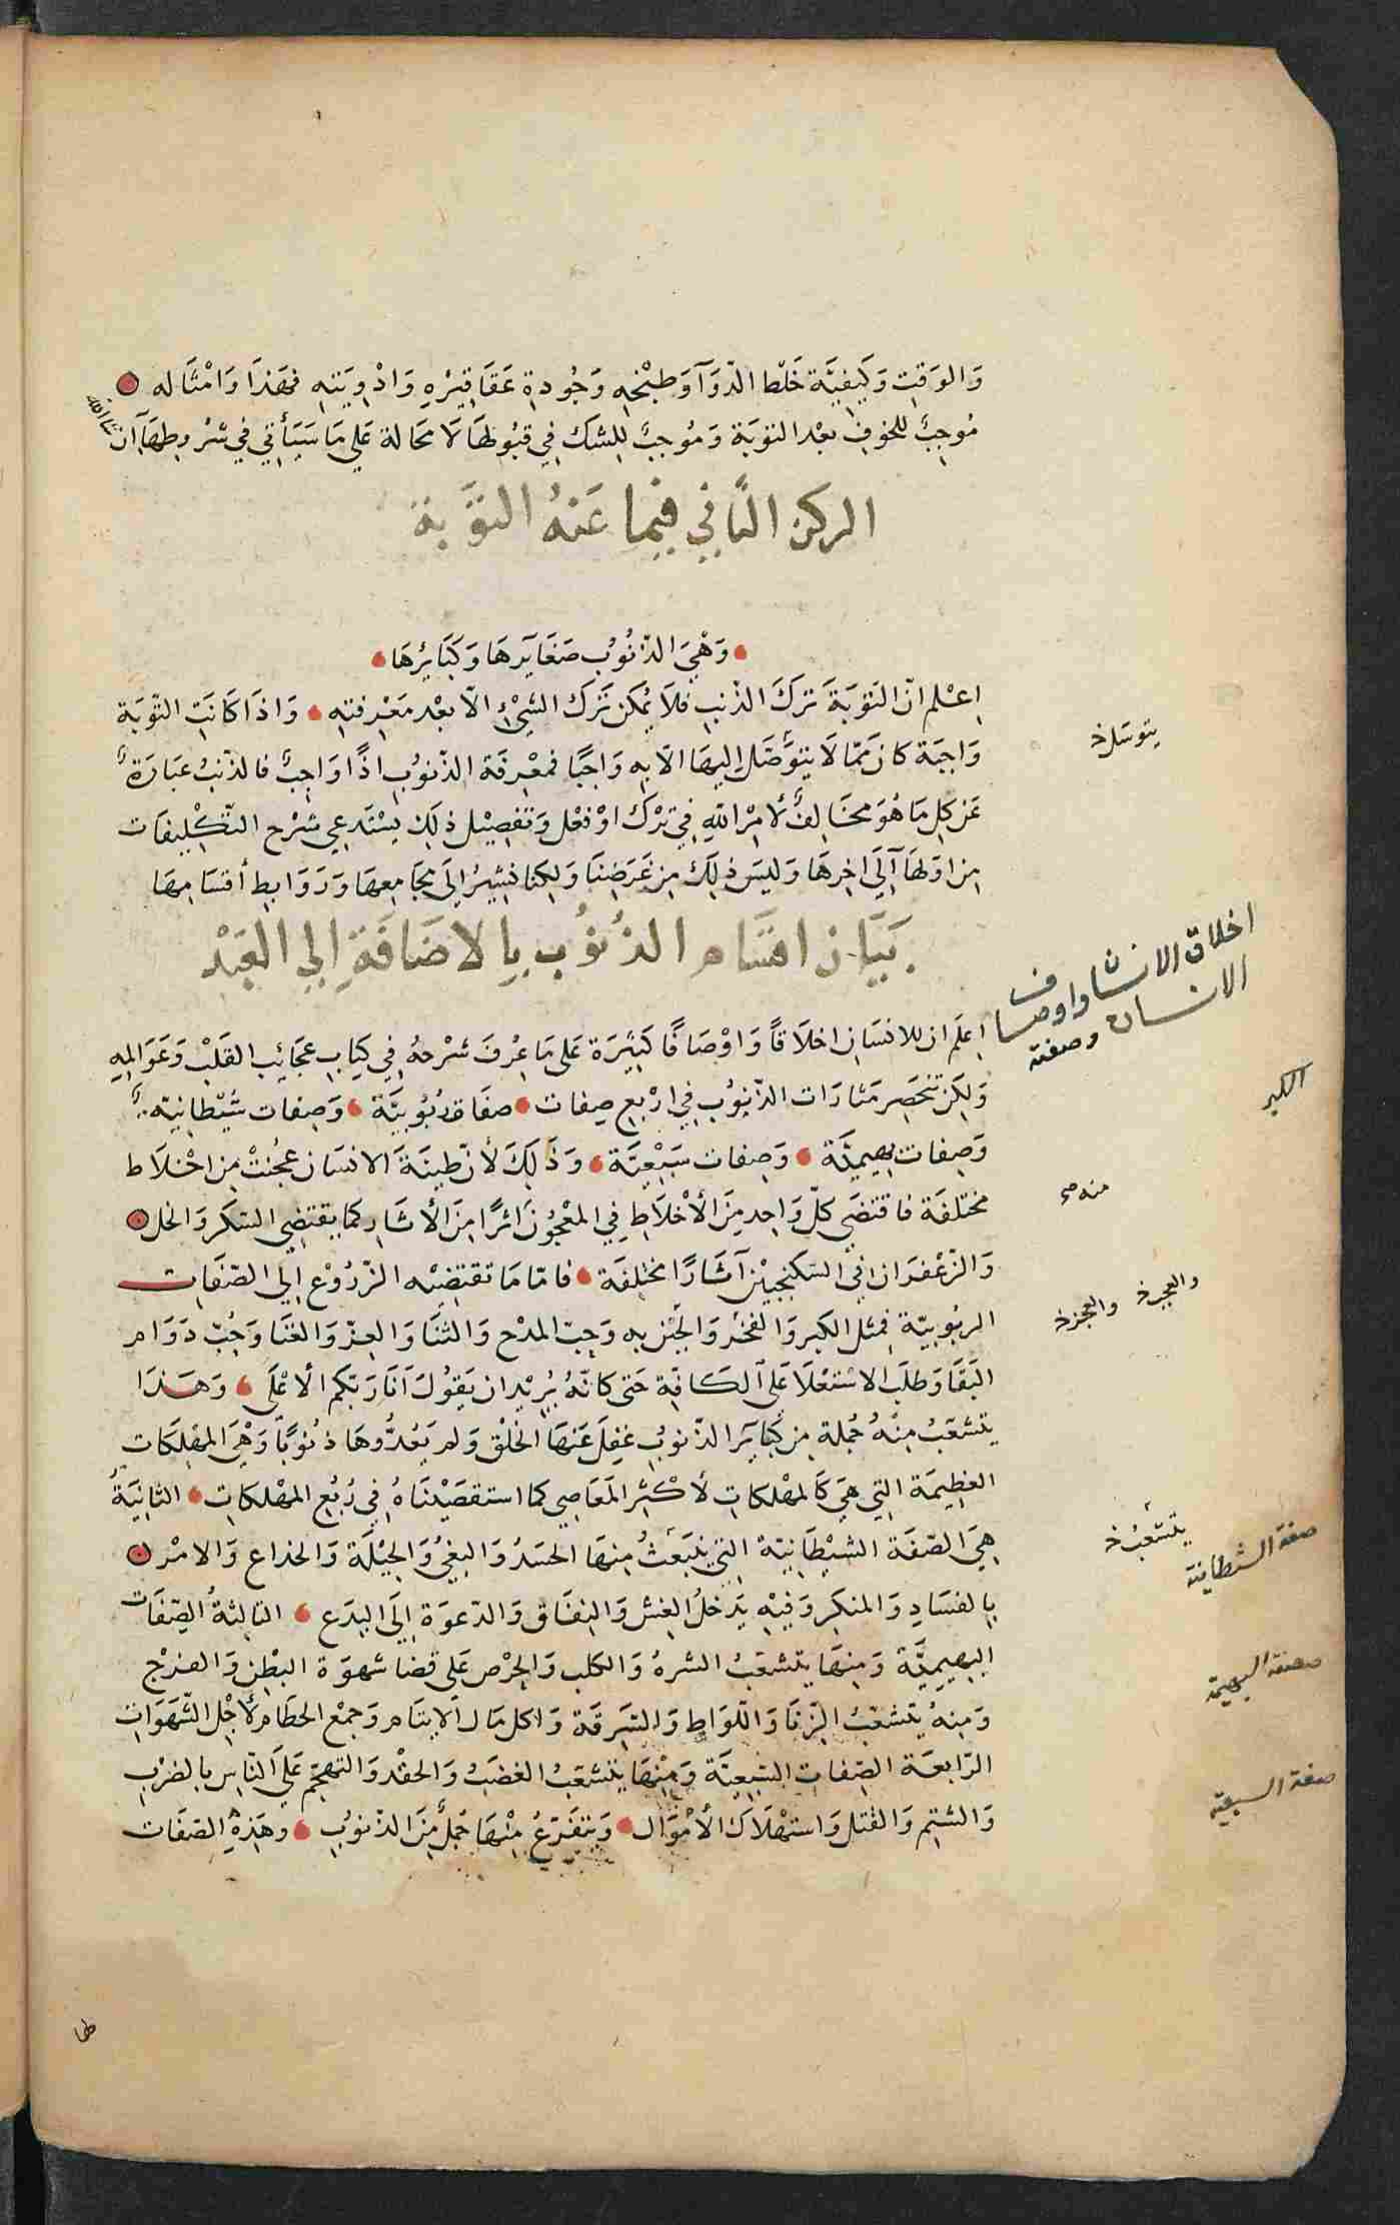 وَالوَقتِ وَكَيفِيَّة خَلْط الدّوَآ وَطبْخِهِ وَجُودةِ عَقَاقِيْرهِ وَادْوِيَتهِ فهَذا وَامْثَاله
مُوجِبٌ للخوفِ بعْد التوبَة وَمُوجبٌ لِلشك فِي قبُولهَا لَا محَالة عَلي مَا سَيَأتي في شرُوطِهَا ان شاء الله
الركن الثاني فيما عَنهُ التوَّبة
وَهْيَ الذّنُوُب صَغَايَرهَا وَكبَايُرهَا
اِعْلم انّ التوْبَةَ تركَ الذّنبِ فلاَ يُمكن تَرك الشيْءِ الّا بعْد مَعْرفتهِ وَاذَا كَانَتِ التّوبَة
وَاجبَة كانَ ممّا لَا يتوَصَّلُ اِليهَا الَا بِهِ وَاجبًا فمعْرِفَة الذّنوُب اذًا وَاجبٌ فالذّنبُ عبَارَةٌ
عَن كلِ مَا هُوَ مخَالفٌ لأمْر اللهِ فِي تركٍ اوْ فعْل وَتفصِيْل ذلِكَ يسْتَدعِي شرْح التّكلِيفات
مِن اوَّلهَا آلَي اخِرهَا وَليسَ ذلِكَ مِن غَرَضِنَا وَلكِنا نشِيْرُ الَي مجَامِعهَا وَرَوَابطِ أقسَامِهَا
بَيَان اقسَام الذنُوُب بِالاضَافَةِ اِلي العَبْد
اِعلَم ان للانسَان اخلاَقاً وَاوْصَافًا كثِيَرَة عَلى مَا عُرفَ شرْحهُ في كتاب عجَائِب القلْبْ وَعَوَالمِهِ
وَلكِن تنحَصِر مَثارَات الذّنوُب فِي ارْبع صِفات صفات رُبُوبيَّة وَصِفات شيْطانيّه
وَصِفات بهِيميَّة وَصِفات سَبْعِيَّة وَذَلِكَ لأن طِينَةَ الانسَان عُجنتْ مِن اخلَاط
مختلفَة فاقتضَى كلّ وَاحِد مِنَ الأخْلَاطِ فِي المعْجُون اثرًا مِنَ الأثار كما يقتضِي السّكَر وَالخل
وَالزّعْفرَان في السّكنجبيْن آثارًا مختلِفَة فامّا مَا تقتضِيْه النّزوُع اِلي الصّفات
الربُوبيّة فمثل الكبر وَالفخر وَالجبْربه وَحبّ المدْح وَالثنَا وَالعِزّ وَالغنَا وَحُبّ دَوَام
البَقَا وَطلَب الاسْتعْلَا عَلَى الكَافّةِ حَتى كانّهُ يُريْد ان يَقوُلَ اَنَا رَبّكم الأعْلَى وَهَذا
يتشعَّبُ مِنْهُ جُملة مِن كبَايَر الذّنوُب غفِلَ عَنهَا الخلْق وَلم يَعُدُّوهَا ذُنوُبًا وَهْيَ المهْلِكات
العظِيمَة التِي هِيَ كَالمهْلكاتِ لأكثر المَعَاصِي كما استقصَيْنَاهُ فِي رُبُع المهْلكاتِ الثانِيَةُ
هِيَ الصّفَة الشيْطَانيّة التِي ينبَعثُ مِنهَا الحسَدُ وَالبَغيُ وَالحِيْلَة وَالخداع وَالامْر
بِالفسَادِ وَالمنكِر وَفِيْهِ يَدخلُ الغِش وَالنِفاق وَالدّعوَة اِلَى البِدَع الثالِثةُ الصِّفَات
البهِيميَّة وَمِنهَا يتشعّبُ الشرهُ وَالكلب وَالحِرْص عَلى قضا شهوَة البَطْنِ وَالفرْج
وَمِنهُ يتشعّبُ الزّنَا وَاللّوَاط وَالسّرِقة وَاكل مَال الايتَام وَجَمْع الحطَام لأجْل الشّهَوَات
الرّابعَة الصِّفات السّبعِيّة وَمِنْهَا يتشعّبُ الغضَبُ وَالحقْد وَالتهجّم عَلَي النّاسِ بِالضرْبِ
وَالشتِم وَالقتل وَاستهْلَاكِ الأمْوَال وَيتفَرّعُ مِنْهَا جُملٌ مِنَ الذّنوُبِ وهَذِهِ الصّفَات
يتوسّل خ
اخلاق الانسان واوصاف
الانسان وصفته
الكبر
منه صح
والعجز خ
يتشعّبُ خ
صفة الشيطانية
صفة البهيمية
صفة السبعية